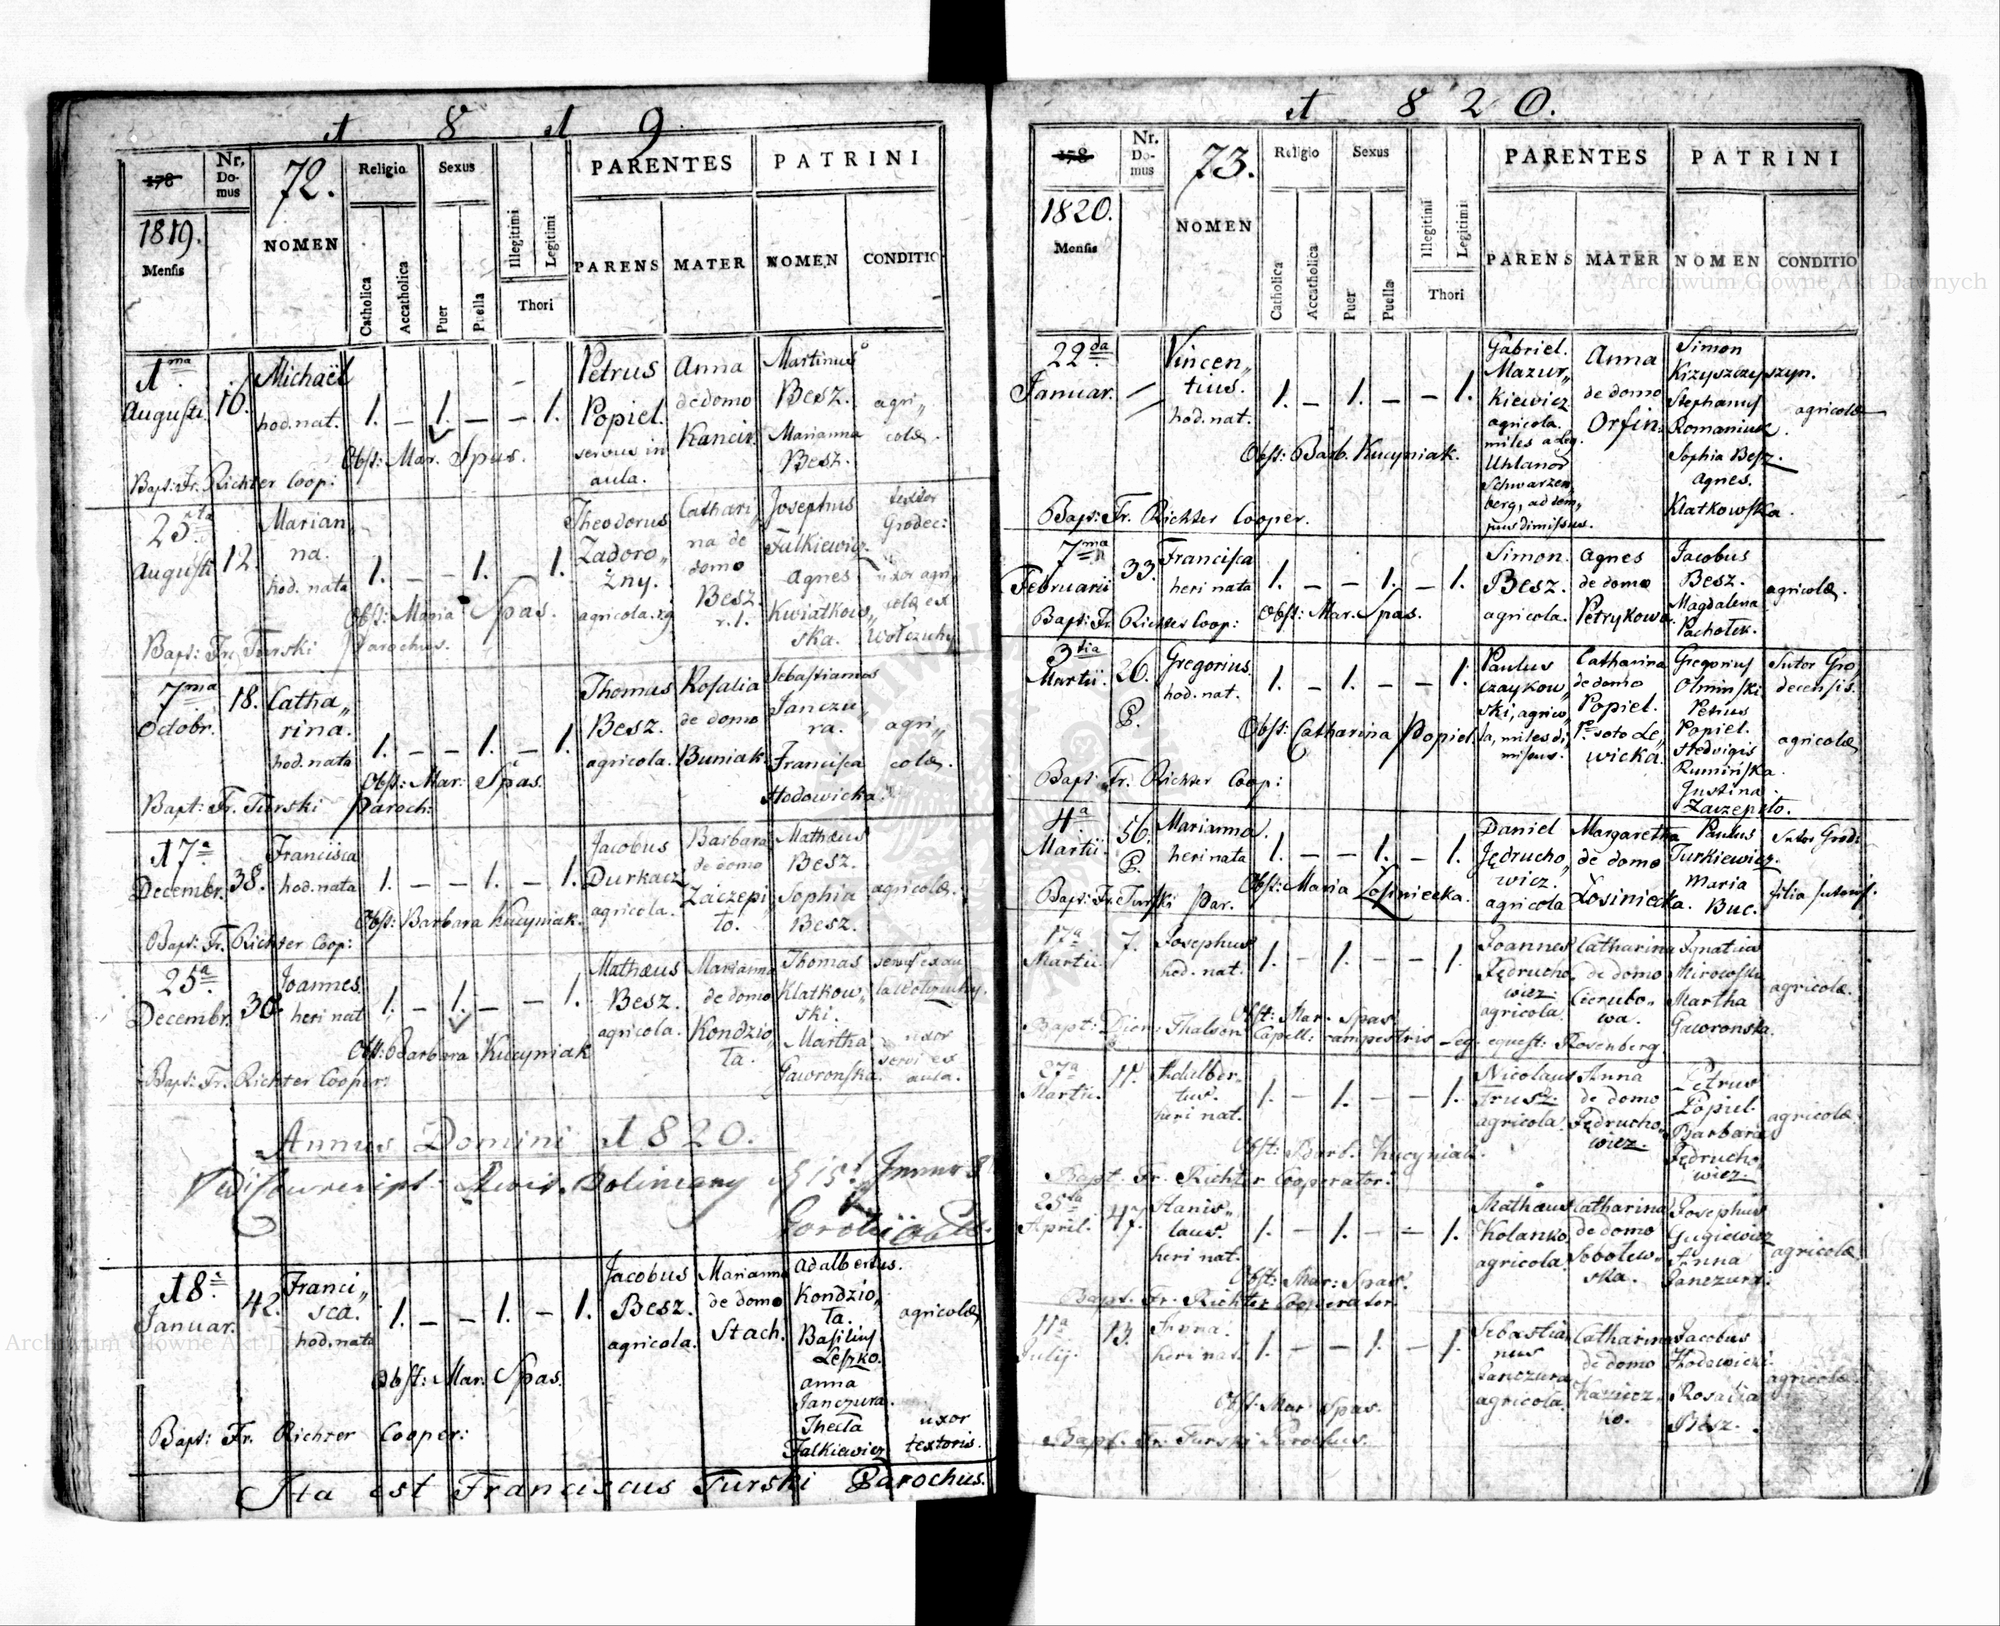 1 8 1 9.
178
Nr. Do- mus
72.
Religio
Sexus
PARENTES
PATRINI
1819.
Mensis
NOMEN
Catholica
Accatholica
Puer
Puella
Illegitimi
Legitimi
Thori
PARENS
MATER
NOMEN
CONDITIO
1ma Augusti.
16.
Michaël hod. nat.
1. — 1. — — 1.
Petrus Popiel. servus in aula.
Anna de domo Kancir.
Martinus Besz. Marianna Besz.
agri„ colæ.
Obst: Mar. Spas.
Bapt: Fr. Richter Coop:
25ta Augusti
12.
Marian na. hod. nata
1. — — 1. — 1.
Theodorus Zadoro„ żny. agricola. rg
Cathari„ na de domo Besz. r. l.
Josephus Falkiewicz. Agnes Kwiatkow„ ska.
textor Grodec: uxor agri„ colæ ex Wołczuhy
Obst: Maria Spas.
Bapt: Fr. Turski Parochus.
7ma Octobr.
18.
Catha„ rina. hod. nata
1. — — 1. — 1.
Thomas Besz. agricola.
Rosalia de domo Buniak.
Sebastianus Janczu„ ra. Francisca Hodowicka.
agri„ colæ.
Obst: Mar: Spas.
Bapt: Fr. Turski Paroch:
17a Decembr.
38.
Francisca hod. nata
1. — — 1. — 1.
Jacobus Durkacz agricola.
Barbara de domo Zaczepi„ to.
Mathæus Besz. Sophia Besz.
agricolæ.
Obst: Barbara Kucyniak.
Bapt: Fr. Richter Coop:
25a Decembr.
30.
Joannes. heri nat.
1. — 1. — — 1.
Mathæus Besz. agricola.
Marianna de domo Kondzio„ ta.
Thomas Klatkow„ ski. Martha Gaworonska.
uxor servi ex aula.
Obst: Barbara Kucyniak
Bapt: Fr. Richter Cooper:
Annus Domini 1820.
18a Januar.
42.
Franci„ sca. hod. nata
1. — — 1. — 1.
Jacobus Besz. agricola.
Marianna de domo Stach.
Adalbertus. Kondzio„ ta. Basilius Leszko. Anna Janczura. Thecla Falkiewicz
agricolæ
uxor textoris.
Obst: Mar. Spas.
Bapt: Fr. Richter Cooper:
Ita est Franciscus Turski Parochus.
1 8 2 0.
178
Nr. Do- mus
73.
Religio
Sexus
PARENTES
PATRINI
1820.
Mensis
NOMEN
Catholica
Accatholica
Puer
Puella
Illegitimi
Legitimi
Thori
PARENS
MATER
NOMEN
CONDITIO
22da Januar.
Vincen„ tius. hod. nat.
1. — 1. — — 1.
Gabriel. Mazur„ kiewicz agricola. miles a Leg. Uhlanor Schwarzen„ berg, ad tem„ pus dimissus.
Anna de domo Orfin.
Simon Krzyszczyszyn. Stephanus Romaniuk. Sophia Besz. Agnes. Klatkowska.
agricolæ
Obst: Barb. Kucyniak.
Bapt: Fr. Richter Cooper.
7ma Februarii
33.
Francisca heri nata
1. — — 1. — 1.
Simon. Besz. agricola.
Agnes de domo Petrykowa.
Jacobus Besz. Magdalena Pachołek.
agricolæ.
Obst: Mar. Spas.
Bapt: Fr. Richter Coop:
3tia Martii.
26.
Gregorius. hod. nat.
1. — 1. — — 1.
Paulus Czaykow„ ski, agrico„ la, miles di„ missus.
Catharina de domo Popiel. 1mo voto Le„ wicka.
Gregorius Olminski Petrus Popiel. Hedvigis Ruminska. Justina Zaczepito.
Sutor Gro„ decensis.
agricolæ
Obst: Catharina Popiel.
Bapt: Fr. Richter Coop:
4a Martii.
56.
Marianna. heri nata
1. — — 1. — 1.
Daniel Jędrucho„ wicz. agricola
Margaretha de domo Łosiniecka.
Paulus Turkiewicz. Maria Buc.
Sutor Grod:
filia sutoris.
Obst: Maria Łosiniecka.
Bapt: Fr. Turski Par.
17a Martii.
7.
Josephus hod. nat.
1. — 1. — — 1.
Joannes Jędrucho„ wicz. agricola.
Catharina de domo Cierubo„ wa.
Ignatius Mirowski Martha Gaworonska.
agricolæ.
Obst: Mar. Spas.
Capell: campestris Leg. equest: Rosenberg.
27a Martii.
11.
Adalber„ tus. heri nat.
1. — 1. — — 1.
Nicolaus agricola.
Anna de domo Jędrucho„ wicz.
Petrus Popiel Barbara Jędrucho„ wicz.
agricolæ
Obst: Barb. Kucyniak.
Bapt. Fr. Richter Cooperator.
25ta April.
47.
Stanis„ laus. heri nat.
1. — 1. — — 1.
Mathæus Kolanko agricola.
Catharina de domo Sobolew„ ska.
Josephus Gugiewicz Anna Janczura.
agricolæ
Obst: Mar: Spas.
Bapt. Fr. Richter Cooperator.
11a Julij.
13.
Anna. heri nat.
1. — — 1. — 1.
Sebastia„ nus Janczura agricola.
Catharina de domo
Jacobus Hodowicki. Rosalia Besz.
agricolæ
Obst: Mar. Spas.
Bapt. Fr. Turski Parochus.
Archiwum Główne Akt Dawnych